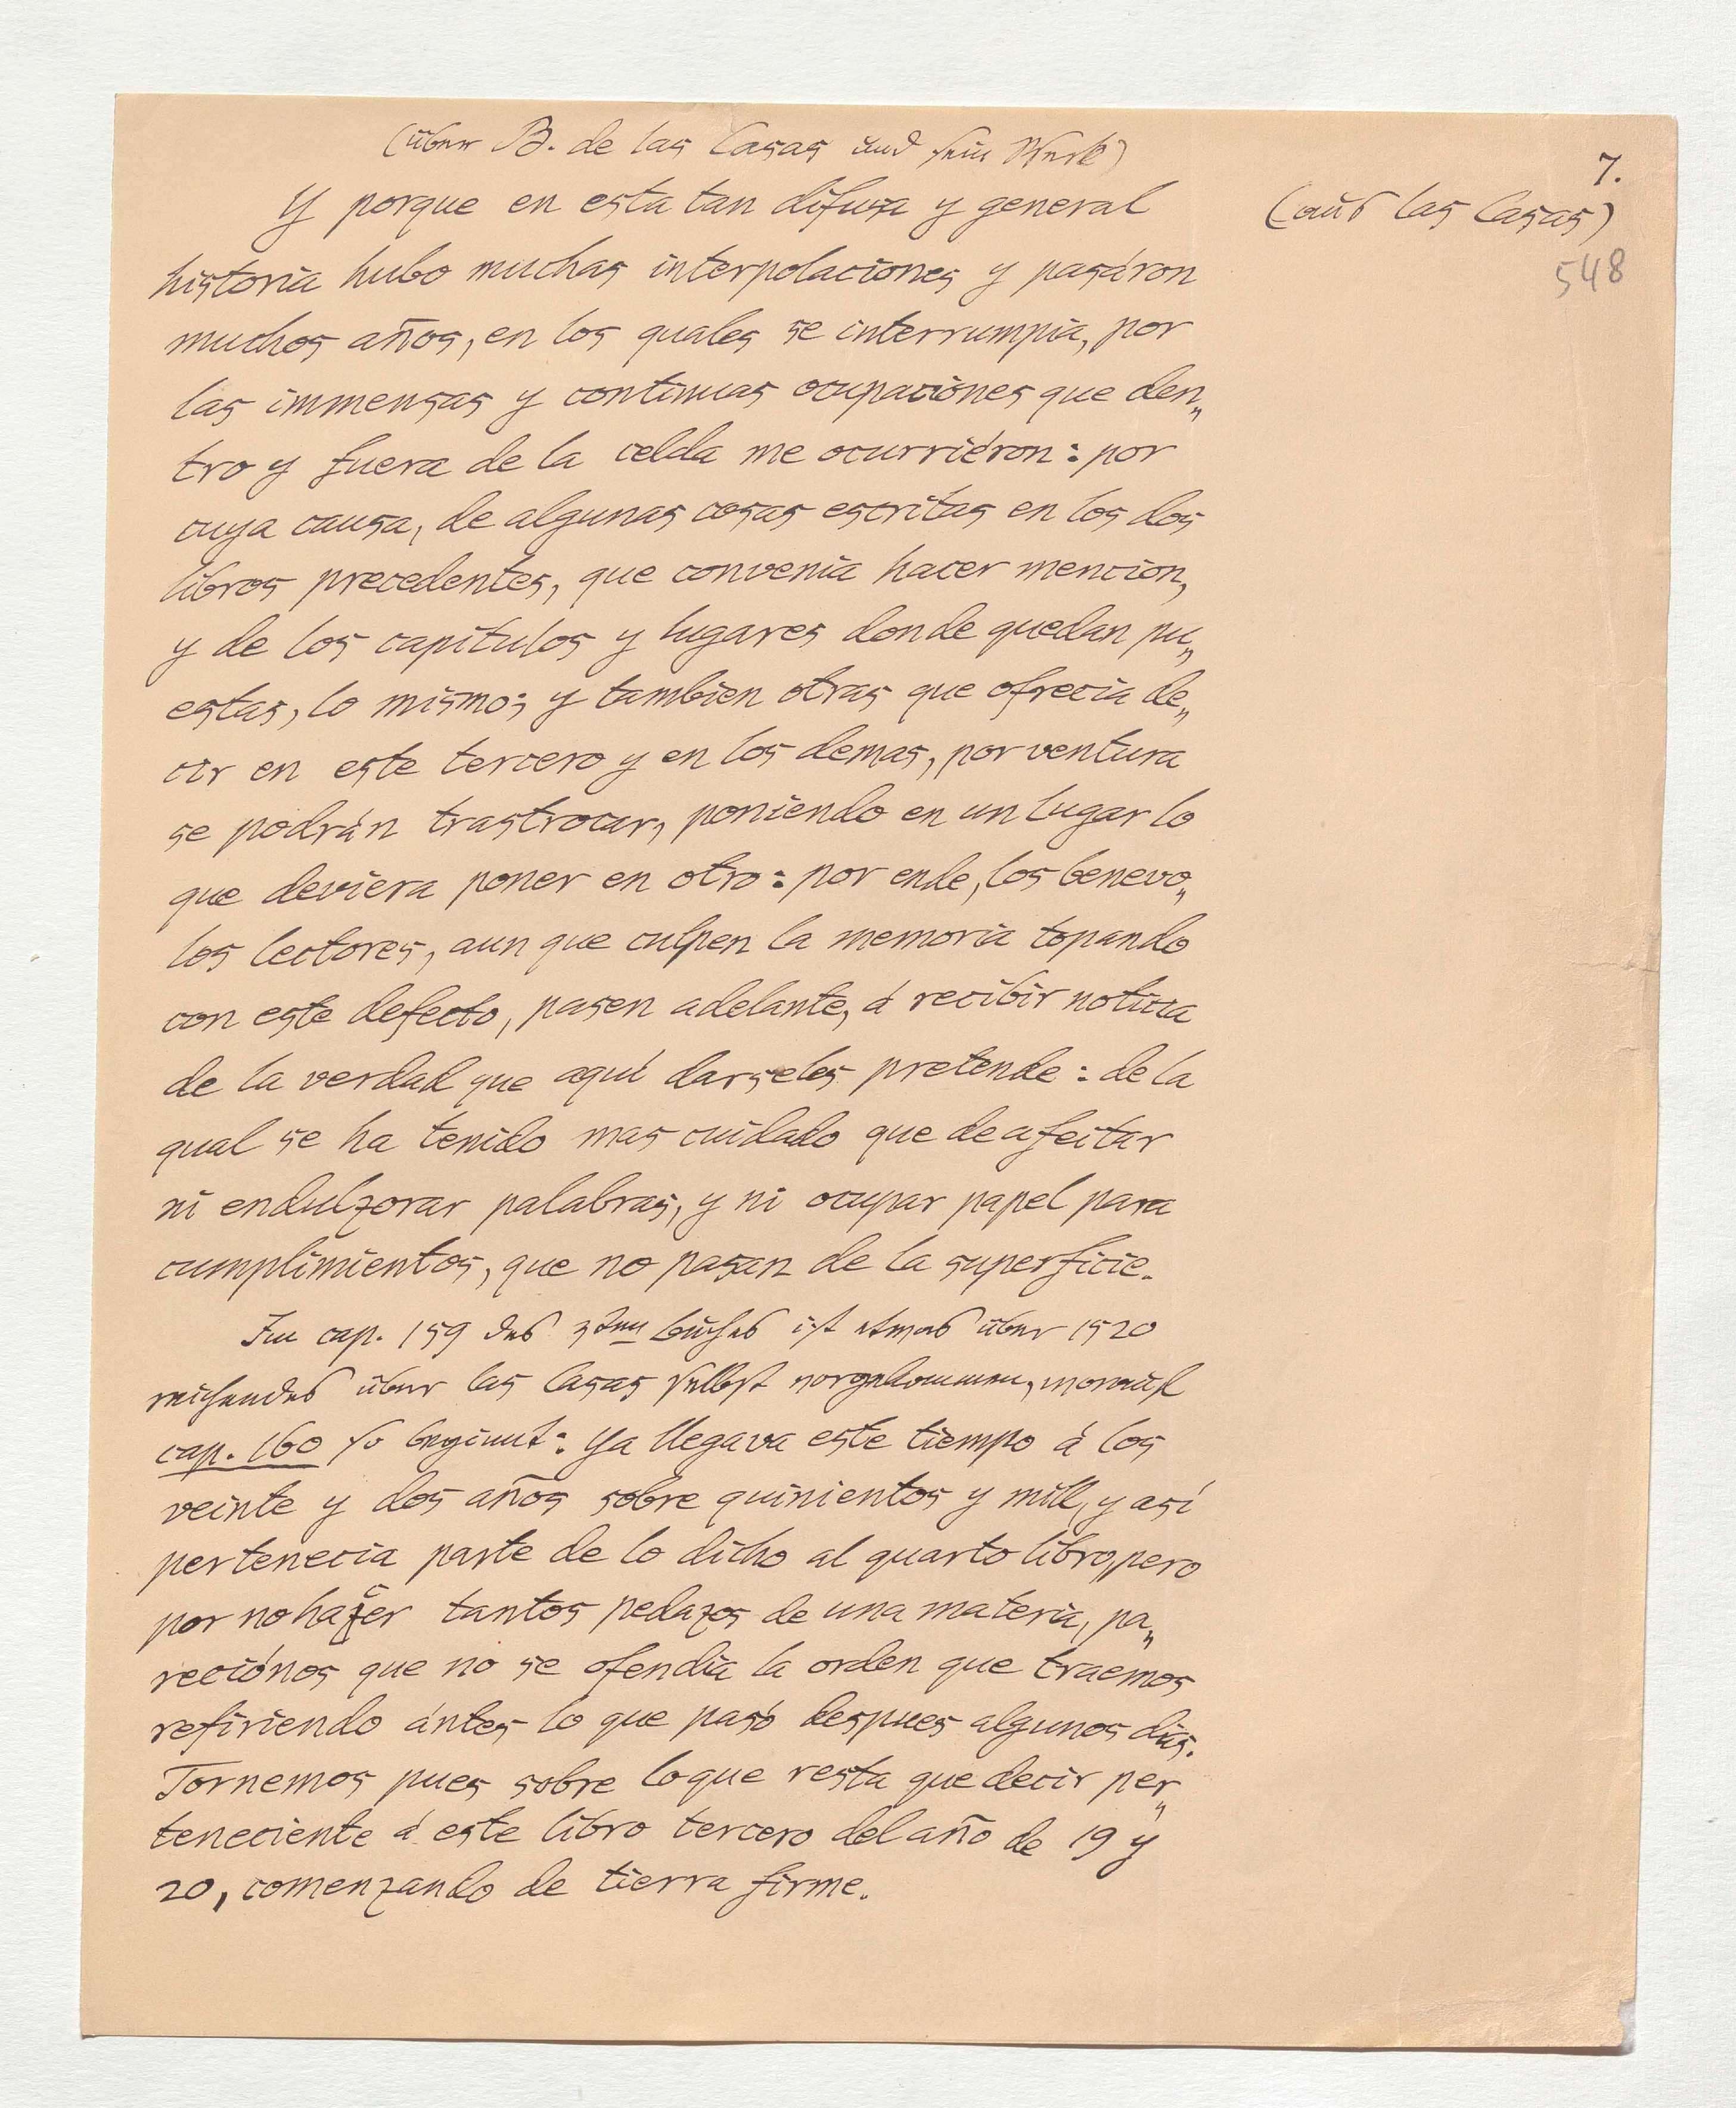 (über B. de las Casas und sein Werk)
7.
(aus las Casas)
548
Y porque en esta tan difusa y general
historia hubo muchas interpolaciones y pasáron
muchos años, en los quales se interrumpia, por
las immensas y continuas ocupaciones que den„
tro y fuera de la celda me ocurriéron: por
cuya causa, de algunas cosas escritas en los dos
libros precedentes, que convenia hacer mencion,
y de los capítulos y lugares donde quedan pu„
estas, lo mismo; y tambien otras que ofrecia de„
cir en este tercero y en los demas, por ventura
se podrán trastrocar, poniendo en un lugar lo
que deviera poner en otro: por ende, los benevo„
los lectores, aun que culpen la memoria topando
con este defecto, pasen adelante, á recibir noticia
de la verdad que aquí darseles pretende: de la
qual se ha tenido mas cuidado que de afeitar
ni endulzorar palabras, y ni ocupar papel para
cumplimientos, que no pasan de la superficie.
Im cap. 159 des 3ten Buches ist etwas über 1520
reichendes über las Casas selbst vorgekommen, worauf
cap. 160 so beginnt: Ya llegava este tiempo á los
veinte y dos años sobre quinientos y mill, y así
pertenecia parte de lo dicho al quarto libro, pero
por no hazer tantos pedazos de una materia, pa„
reciónos que no se ofendia la orden que traemos
refiriendo ántes lo que pasó despues algunos dias.
Tornemos pues sobre lo que resta que decir per„
teneciente á este libro tercero del año de 19 y
20, comenzando de tierra firme.